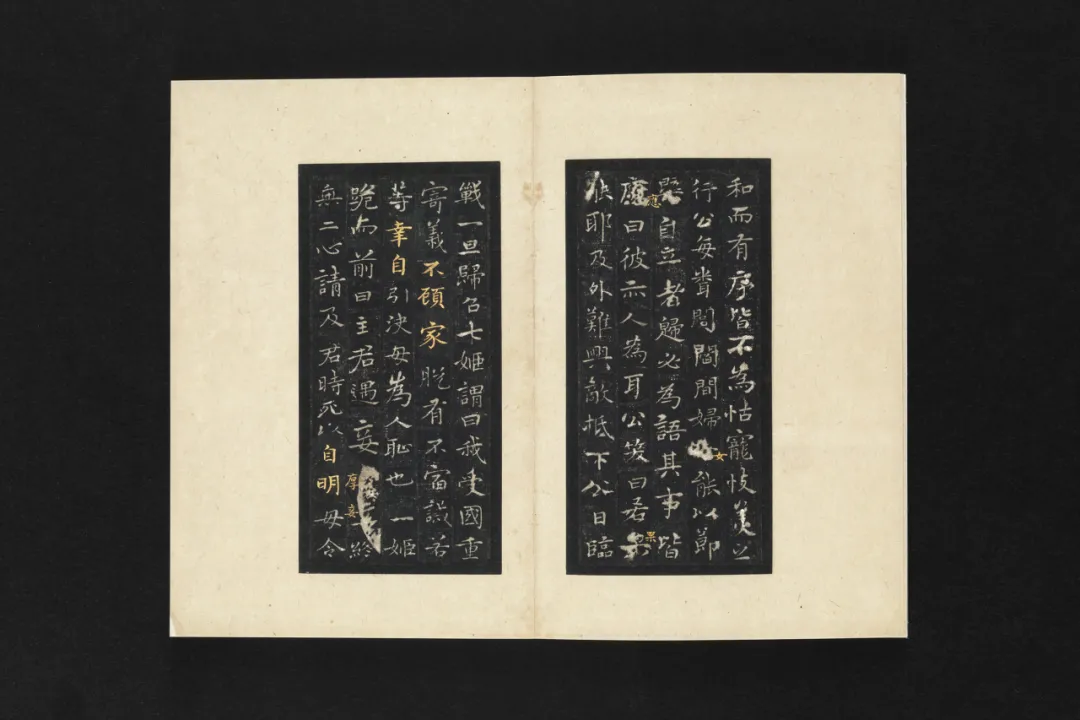 和而有序皆不為怙寵忮美之
行公每閭閻間婦女能以節
自立者歸必為語其事皆
應曰彼亦人為耳公笑曰若果
耶及外難興敵抵下公日臨
戰一旦歸召七姬謂曰我受國重
寄義不顧家脫有不宿誡若
等幸自引決毋為人恥也一姬
跪而前曰主君遇妾厚妾終
無二心請及君時死以自明毋令